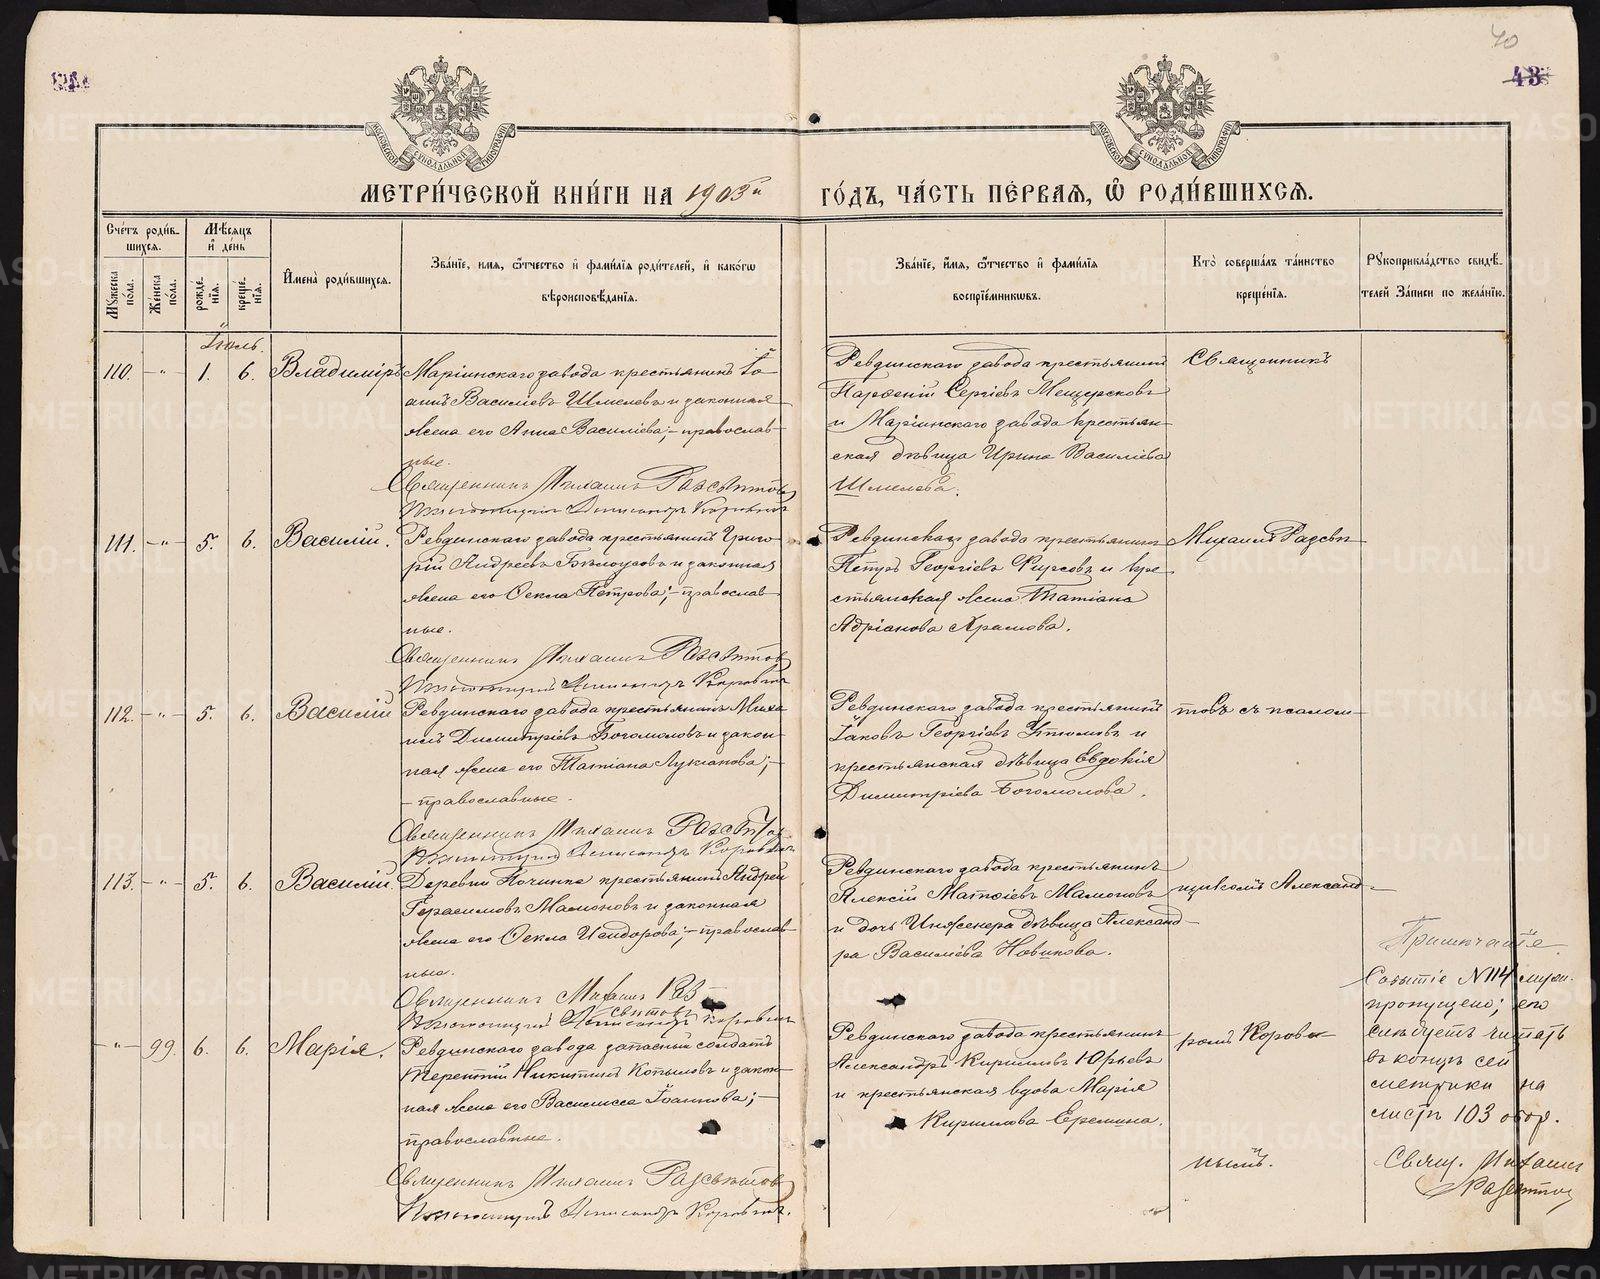 40
43
МОСКОВСКОЙ СѴНОДАЛЬНОЙ ТИПОГРАФІИ
МОСКОВСКОЙ СѴНОДАЛЬНОЙ ТИПОГРАФІИ
МЕТРИ́ЧЕСКОЙ КНИ́ГИ НА 1903й ГО́ДЪ, ЧА́СТЬ ПЕ́РВАЯ, Ѡ РОДИ́ВШИХСЯ.
Сче́тъ роди́в-
шихся.
Мꙋжеска пола.
Же́нска пола.
Мѣ́сяцъ
и҆ де́нь
рожде́-
нїя.
креще́-
нїя.
И҆мена̀ роди́вшихся.
Зва́нїе, имя, ѻ҆́тчество и҆ фами́лїя роди́телей, и҆ како́гѡ
вѣроисповѣ́данїя.
Зва́нїе, и҆́мя, ѻ҆́тчество и҆ фами́лїя
воспрїе́мникѡвъ.
Кто̀ соверша́лъ та́инство
креще́нїя.
Рꙋкоприкла́дство свидѣ́-
телей За́писи по жела́нїю.
Іюль.
110. - " - 1. 6. Владиміръ
Маріинскаго завода крестьянинъ Іо-
аннъ Василіевъ Шмелевъ и законная
жена его Анна Василіева; - православ-
ные.
Священникъ Михаилъ Разсвѣтовъ
Псаломщикъ Александръ Коровинъ
Ревдинскаго завода крестьянинъ
Парѳеній Сергіевъ Мещерсковъ
и Маріинскаго завода крестьян-
ская дѣвица Ирина Василіева
Шмелева.
Священникъ
111. - " - 5. 6. Василій.
Ревдинскаго завода крестьянинъ Григо-
рій Андреевъ Бѣлоусовъ и законная
жена его Ѳекла Петрова; - православ-
ные.
Священникъ Михаилъ Разсвѣтовъ
Псаломщикъ Александръ Коровинъ
Ревдинскаго завода крестьянинъ
Петръ Георгіевъ и кре-
стьянская жена Татіана
Адріанова Храмова.
Михаилъ Разсвѣ-
112. - " - 5. 6. Василій
Ревдинскаго завода крестьянинъ Миха-
илъ Димитріевъ Богомоловъ и закон-
ная жена его Татіана Лукіанова; -
- православные.
Священникъ Михаилъ Разсвѣтов
Псаломщикъ Александръ Коровинъ
Ревдинскаго завода крестьянинъ
Іаковъ Георгіевъ Утюмовъ и
крестьянская дѣвица Евдокія
Димитріева Богомолова.
товъ съ псалом-
113. - " - 5. 6. Василій.
Деревни Починка крестьянинъ Андрей
Герасимовъ Мамоновъ и законная
жена его Ѳекла Исидорова; - православ-
ные.
Священникъ Михаилъ Раз-
свѣтовъ
Псаломщикъ Александръ Коровинъ
Ревдинскаго завода крестьянинъ
Алексій Матѳіевъ Мамоновъ
и дочь Инженера дѣвица Александ-
ра Василіева Новикова.
щикомъ Александ-
- " - 99. 6. 6. Марія.
Ревдинскаго завода запасный солдатъ
Терентій Никитинъ Копыловъ и закон-
ная жена его Василисса Іоаннова; -
православные.
Священникъ Михаилъ Разсвѣтовъ
Псаломщикъ Александръ Коровинъ.
Ревдинскаго завода крестьянинъ
Александръ Кирилловъ Юрьевъ
и крестьянская вдова Марія
Кириллова Еремина.
ромъ Корови-
нымъ.
Примѣчаніе
Событіе №114 муж.
пропущено; его
слѣдуетъ читать
въ концѣ сей
метрики на
листѣ 103 обор.
Свящ. Михаилъ
Разсвѣтовъ
METRIKI.GASO-URAL.RU